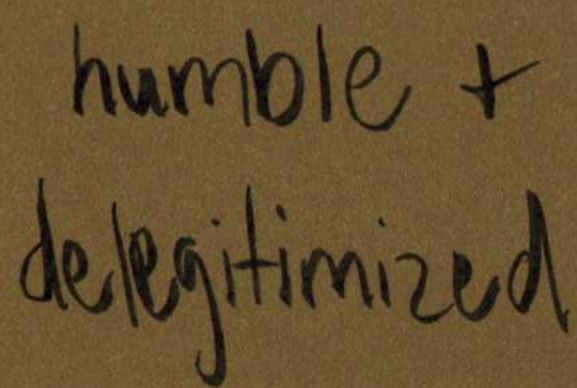 humble +
delegitimized